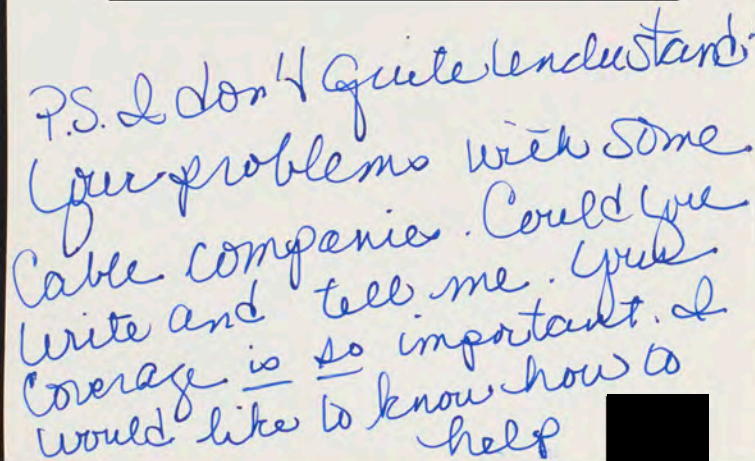 P.S. I don't quite understand
your problems with some
Cable companies. Could you
write and tell me. Your
Coverage is so important. I
would like to know how to
help